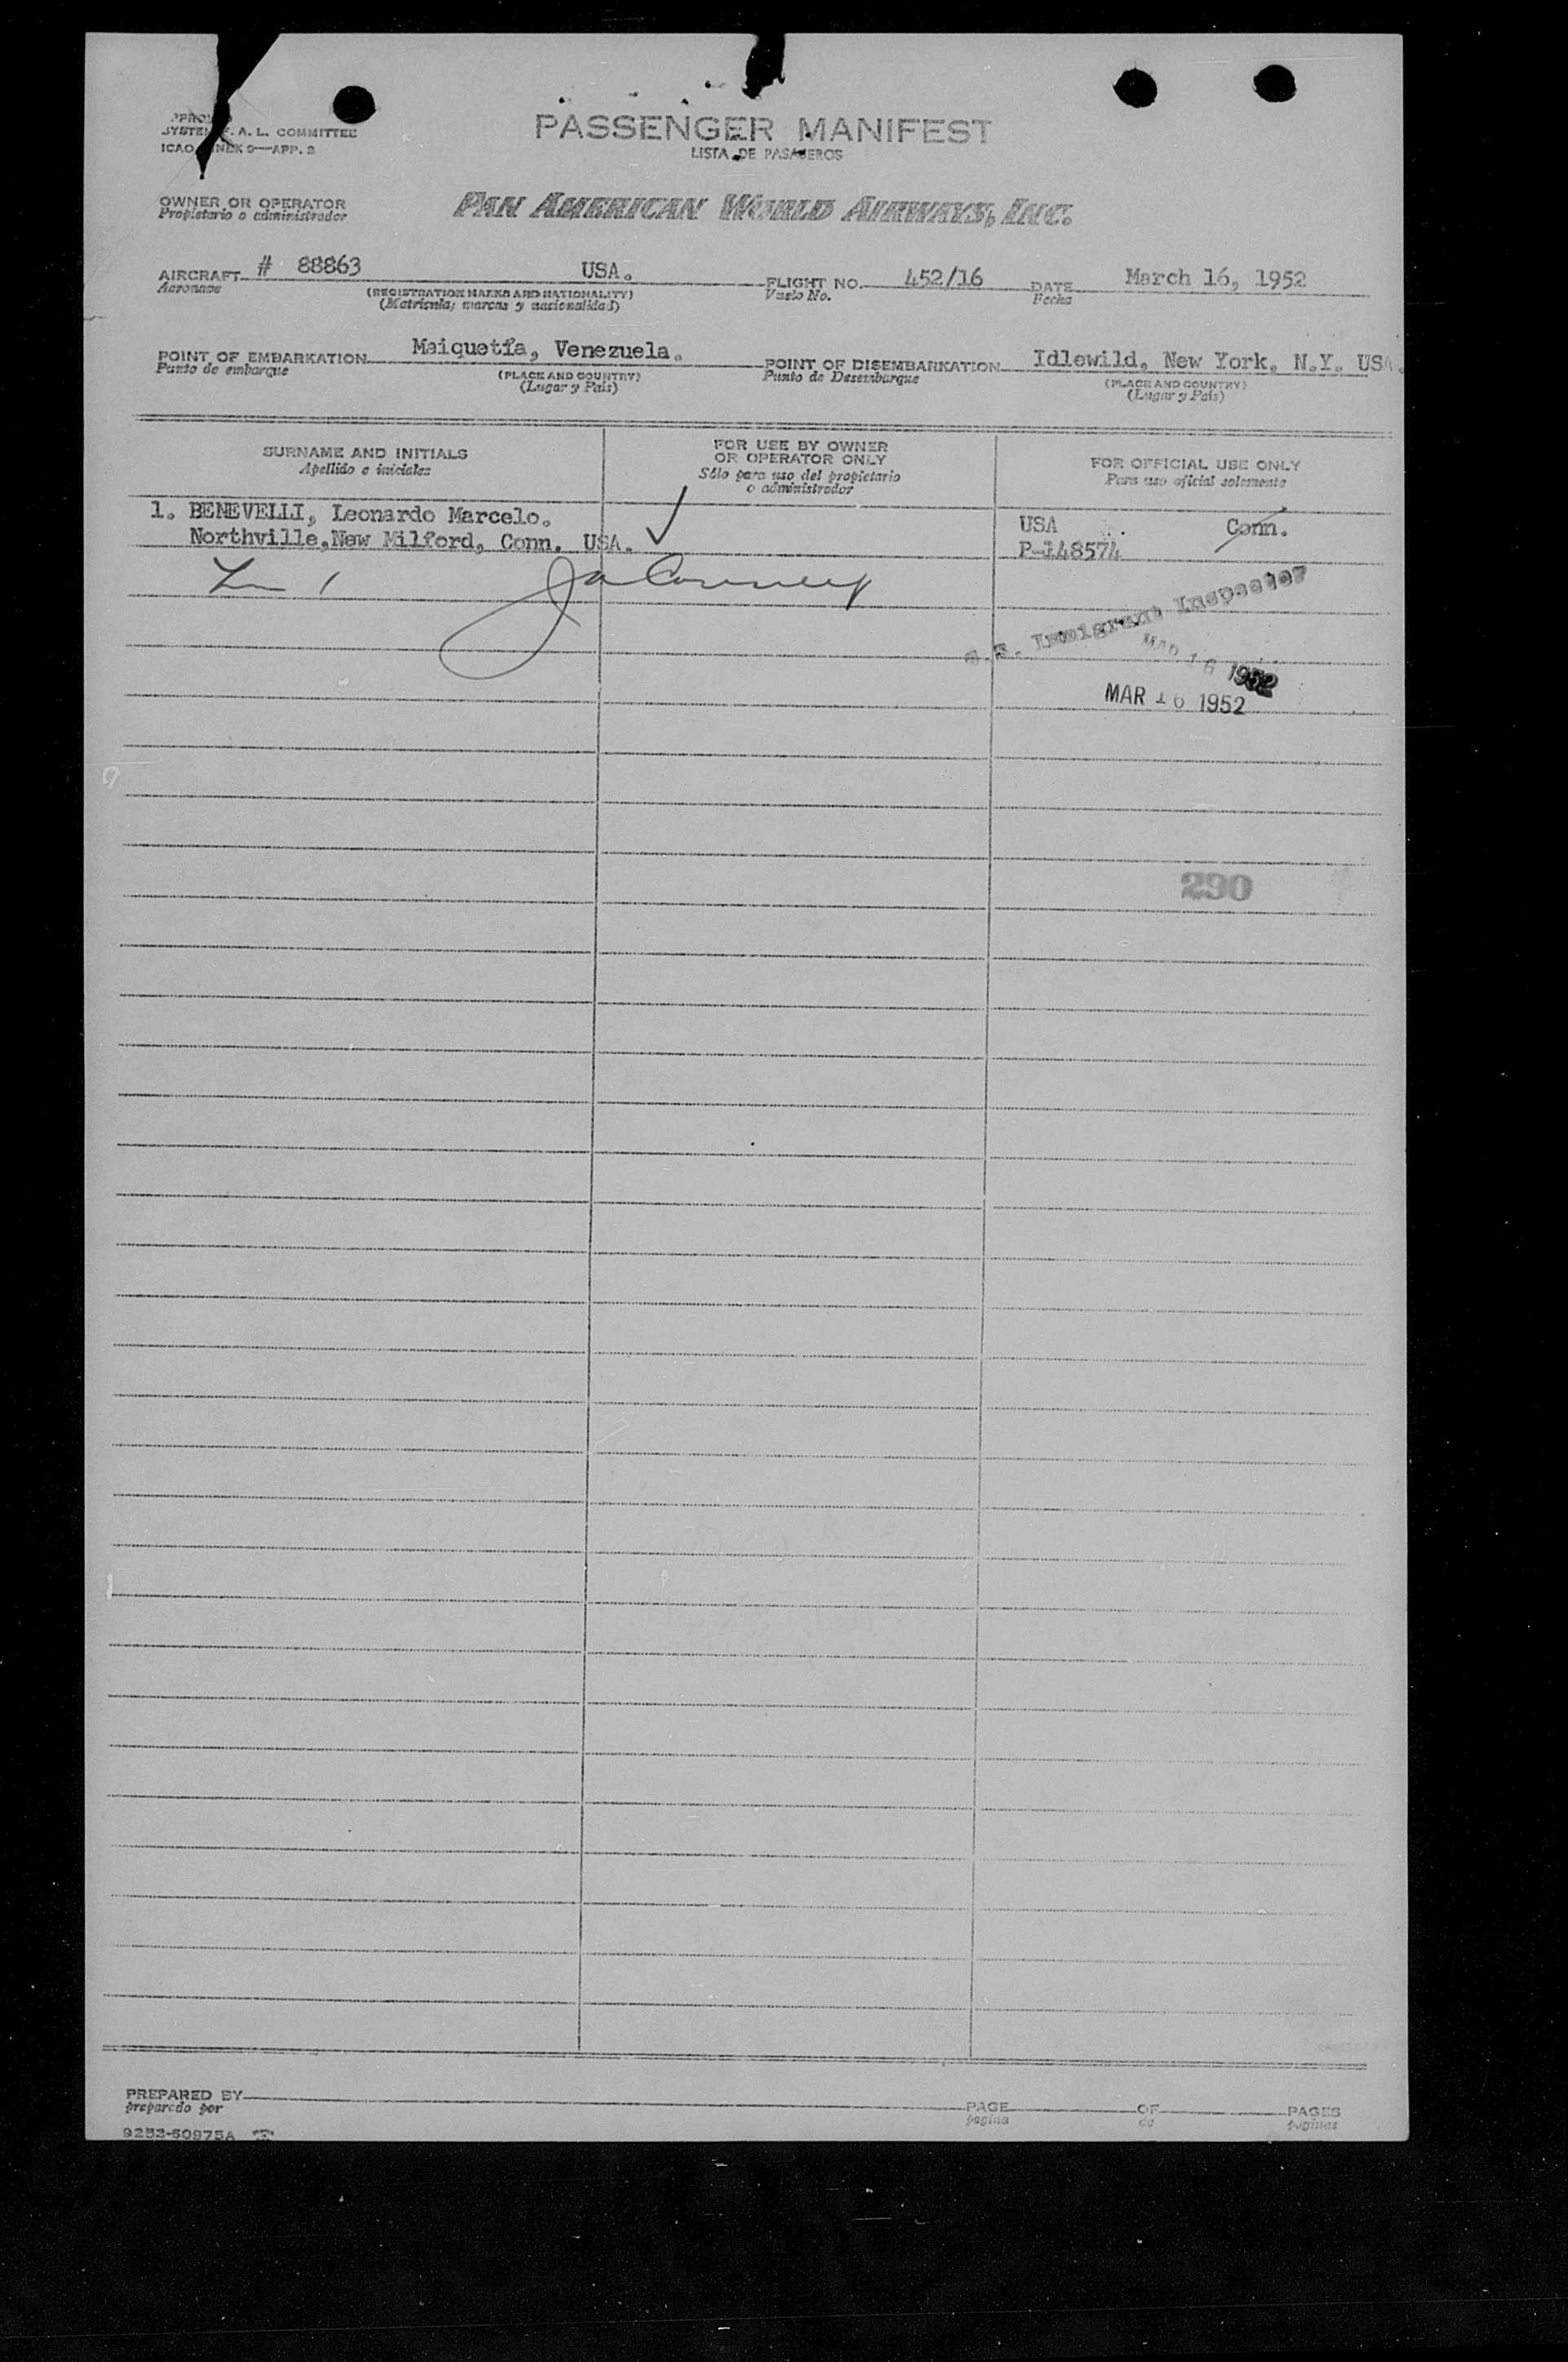 SYSTEM F. A. L. COMMITTEE
ICAO ANNEX 9—APP. 2
PASSENGER MANIFEST
LISTA DE PASAJEROS
OWNER OR OPERATOR
Propietario o administrador
PAN AMERICAN WORLD AIRWAYS, INC.
AIRCRAFT # 88863 USA. FLIGHT NO. 452/16 DATE March 16, 1952
Aeronave (REGISTRATION MARKS AND NATIONALITY) Vuelo No. Fecha
(Matricula; marcas y nacionalidad)
POINT OF EMBARKATION Maiquetía, Venezuela. POINT OF DISEMBARKATION Idlewild, New York, N.Y. USA.
Punto de embarque (PLACE AND COUNTRY) Punto de Desembarque (PLACE AND COUNTRY)
(Lugar y País) (Lugar y País)
SURNAME AND INITIALS
Apellido e iniciales
FOR USE BY OWNER
OR OPERATOR ONLY
Sólo para uso del propietario
o administrador
FOR OFFICIAL USE ONLY
Para uso oficial solamente
1. BENEVELLI, Leonardo Marcelo. USA Conn.
Northville,New Milford, Conn. USA. P-148574
S. Immigrant Inspector
MAR 16 1952
MAR 16 1952
290
PREPARED BY PAGE OF PAGES
preparado por pagina de paginas
9253-50975A